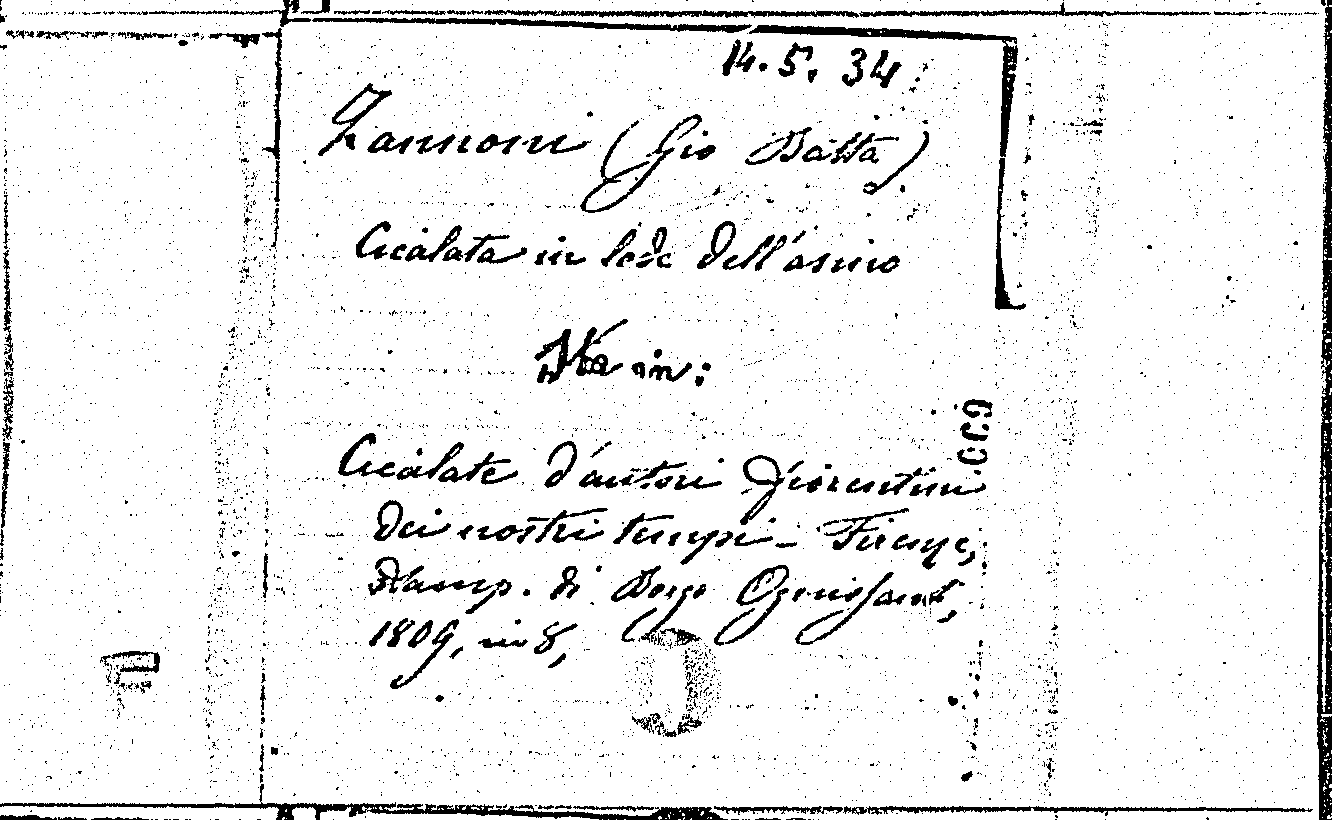 14. 5. 34
Zannoni (Gio Batta)
Cicalata in lode dell'asino
Sta in:
Cicalate d'autori fiorentini
dei nostri tempi - Firenze,
Stamp. di Borgo Ognissanti,
1809, in 8,